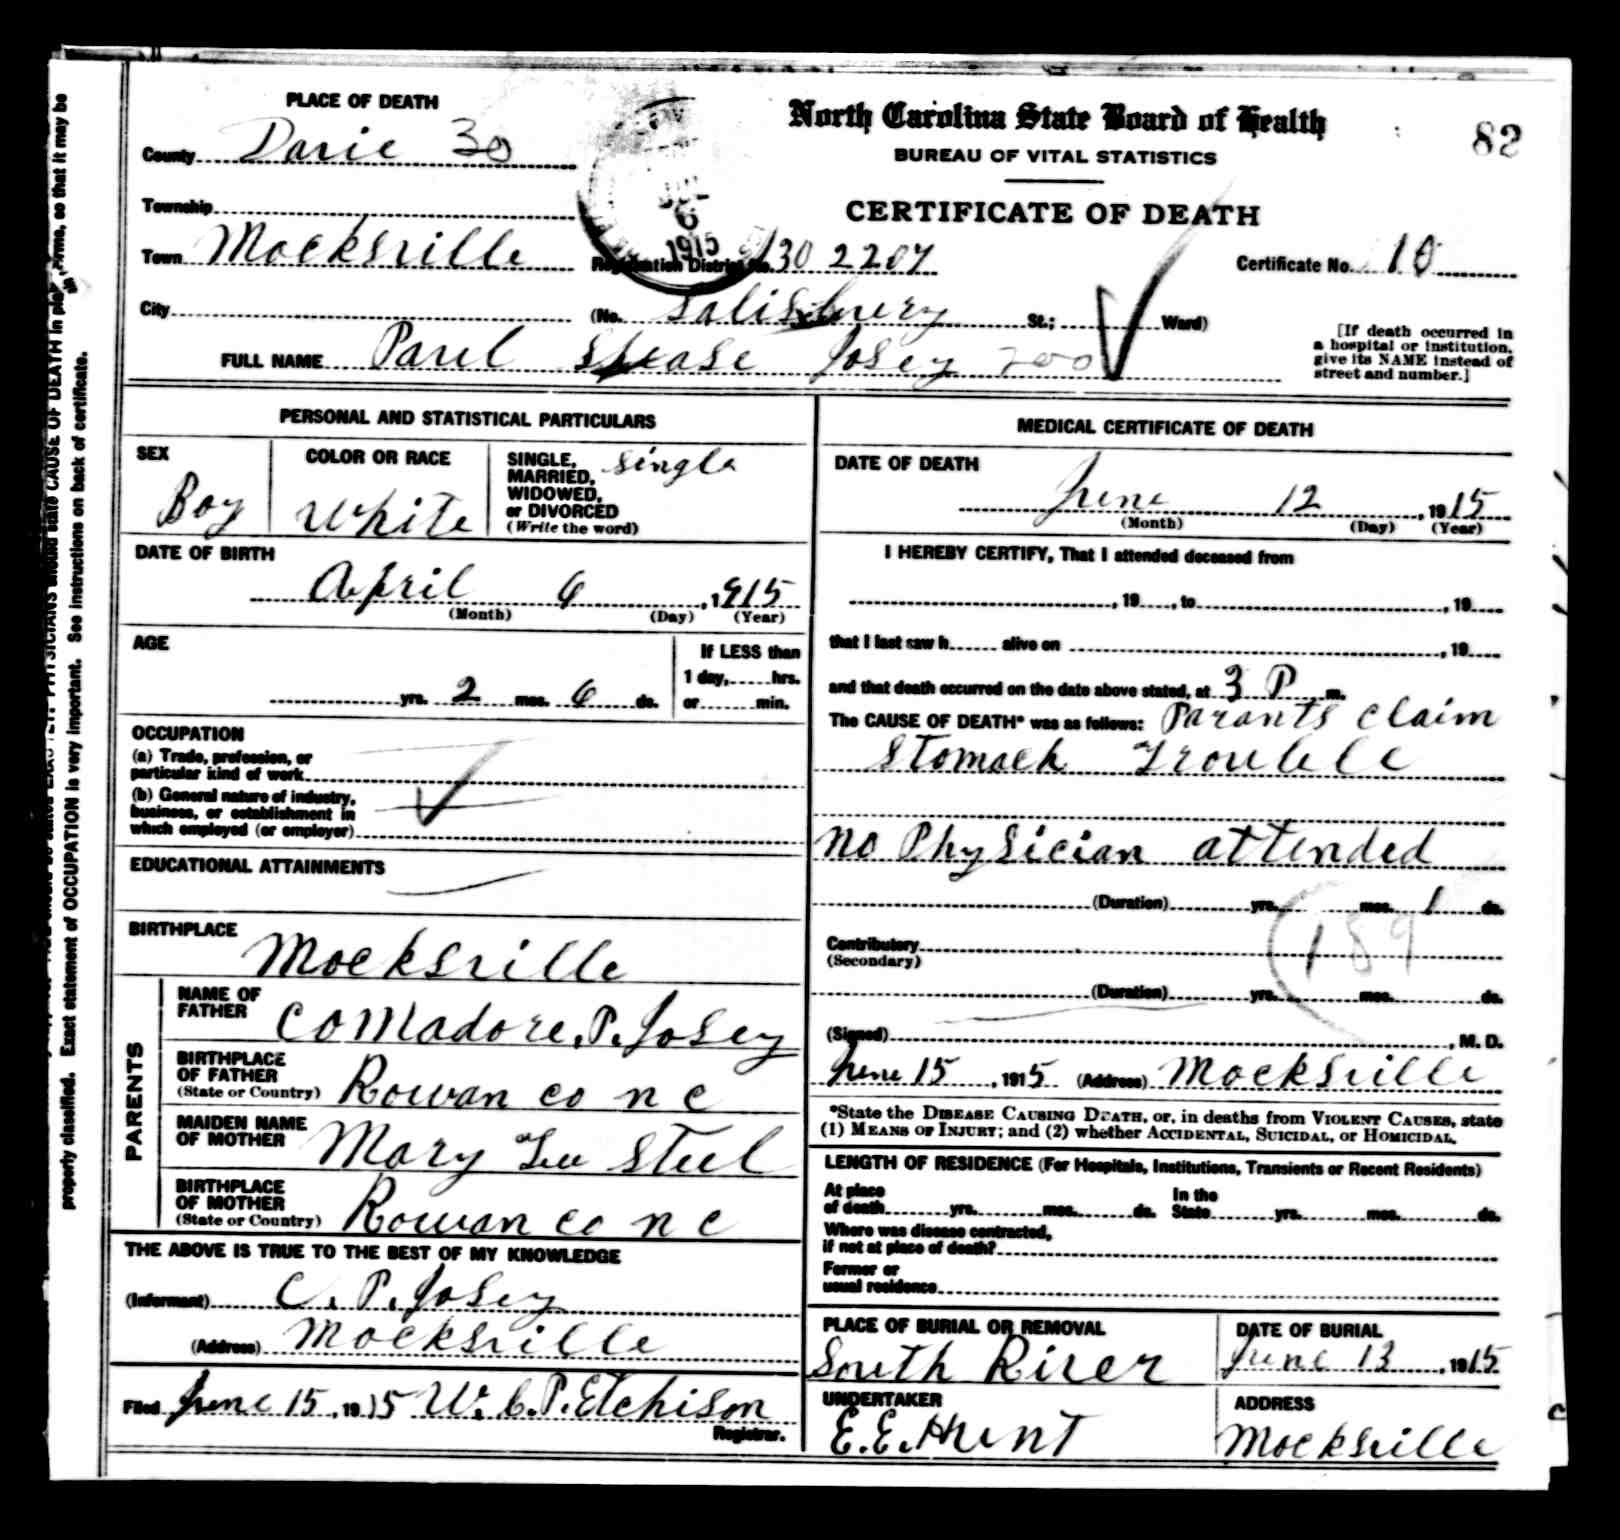 PLACE OF DEATH
County Davie 30
Township
Town Mocksville
City
North Carolina State Board of Health
82
BUREAU OF VITAL STATISTICS
CERTIFICATE OF DEATH
6
1915
Registration District No. 30 2207
Certificate No. 10
(No. Salisbury St.; Ward)
[If death occurred in
a hospital or institution,
give its NAME instead of
street and number.]
FULL NAME Parul Slease Josey 200
PERSONAL AND STATISTICAL PARTICULARS
SEX
Boy
COLOR OR RACE
White
SINGLE, Single
MARRIED,
WIDOWED,
or DIVORCED
(Write the word)
DATE OF BIRTH
April 6, 1915
(Month) (Day) (Year)
AGE
yrs. 2 mos. 6 ds.
If LESS than
1 day, hrs.
or min.
OCCUPATION
(a) Trade, profession, or
particular kind of work
(b) General nature of industry,
business, or establishment in
which employed (or employer)
EDUCATIONAL ATTAINMENTS
BIRTHPLACE
Mocksville
PARENTS
NAME OF
FATHER Comadore. P. Josey
BIRTHPLACE
OF FATHER
(State or Country) Rowan co n c
MAIDEN NAME
OF MOTHER Mary Lee Steel
BIRTHPLACE
OF MOTHER
(State or Country) Rowan co n c
THE ABOVE IS TRUE TO THE BEST OF MY KNOWLEDGE
(Informant) C. P. Josey
(Address) Mocksville
Filed June 15, 1915 W. C. P. Etchison
Registrar.
MEDICAL CERTIFICATE OF DEATH
DATE OF DEATH
June 12, 1915
(Month) (Day) (Year)
I HEREBY CERTIFY, That I attended deceased from
, 19 , to , 19
that I last saw h alive on , 19
and that death occurred on the date above stated, at 3 P m.
The CAUSE OF DEATH* was as follows: Parants claim
Stomach Trouble
no Physician attended
(Duration) yrs. mos. 1 ds.
Contributory
(Secondary)
189
(Duration) yrs. mos. ds.
(Signed) , M. D.
June 15, 1915 (Address) Mocksville
*State the DISEASE CAUSING DEATH, or, in deaths from VIOLENT CAUSES, state
(1) MEANS OF INJURY; and (2) whether ACCIDENTAL, SUICIDAL, or HOMICIDAL.
LENGTH OF RESIDENCE (For Hospitals, Institutions, Transients or Recent Residents)
At place
of death yrs. mos. ds.
In the
State yrs. mos. ds.
Where was disease contracted,
if not at place of death?
Former or
usual residence
PLACE OF BURIAL OR REMOVAL
South River
DATE OF BURIAL
June 13, 1915
UNDERTAKER
E. E. Hunt
ADDRESS
Mocksville
properly classified. Exact statement of OCCUPATION is very important. See instructions on back of certificate.
PHYSICIANS should state CAUSE OF DEATH in plain terms, so that it may be